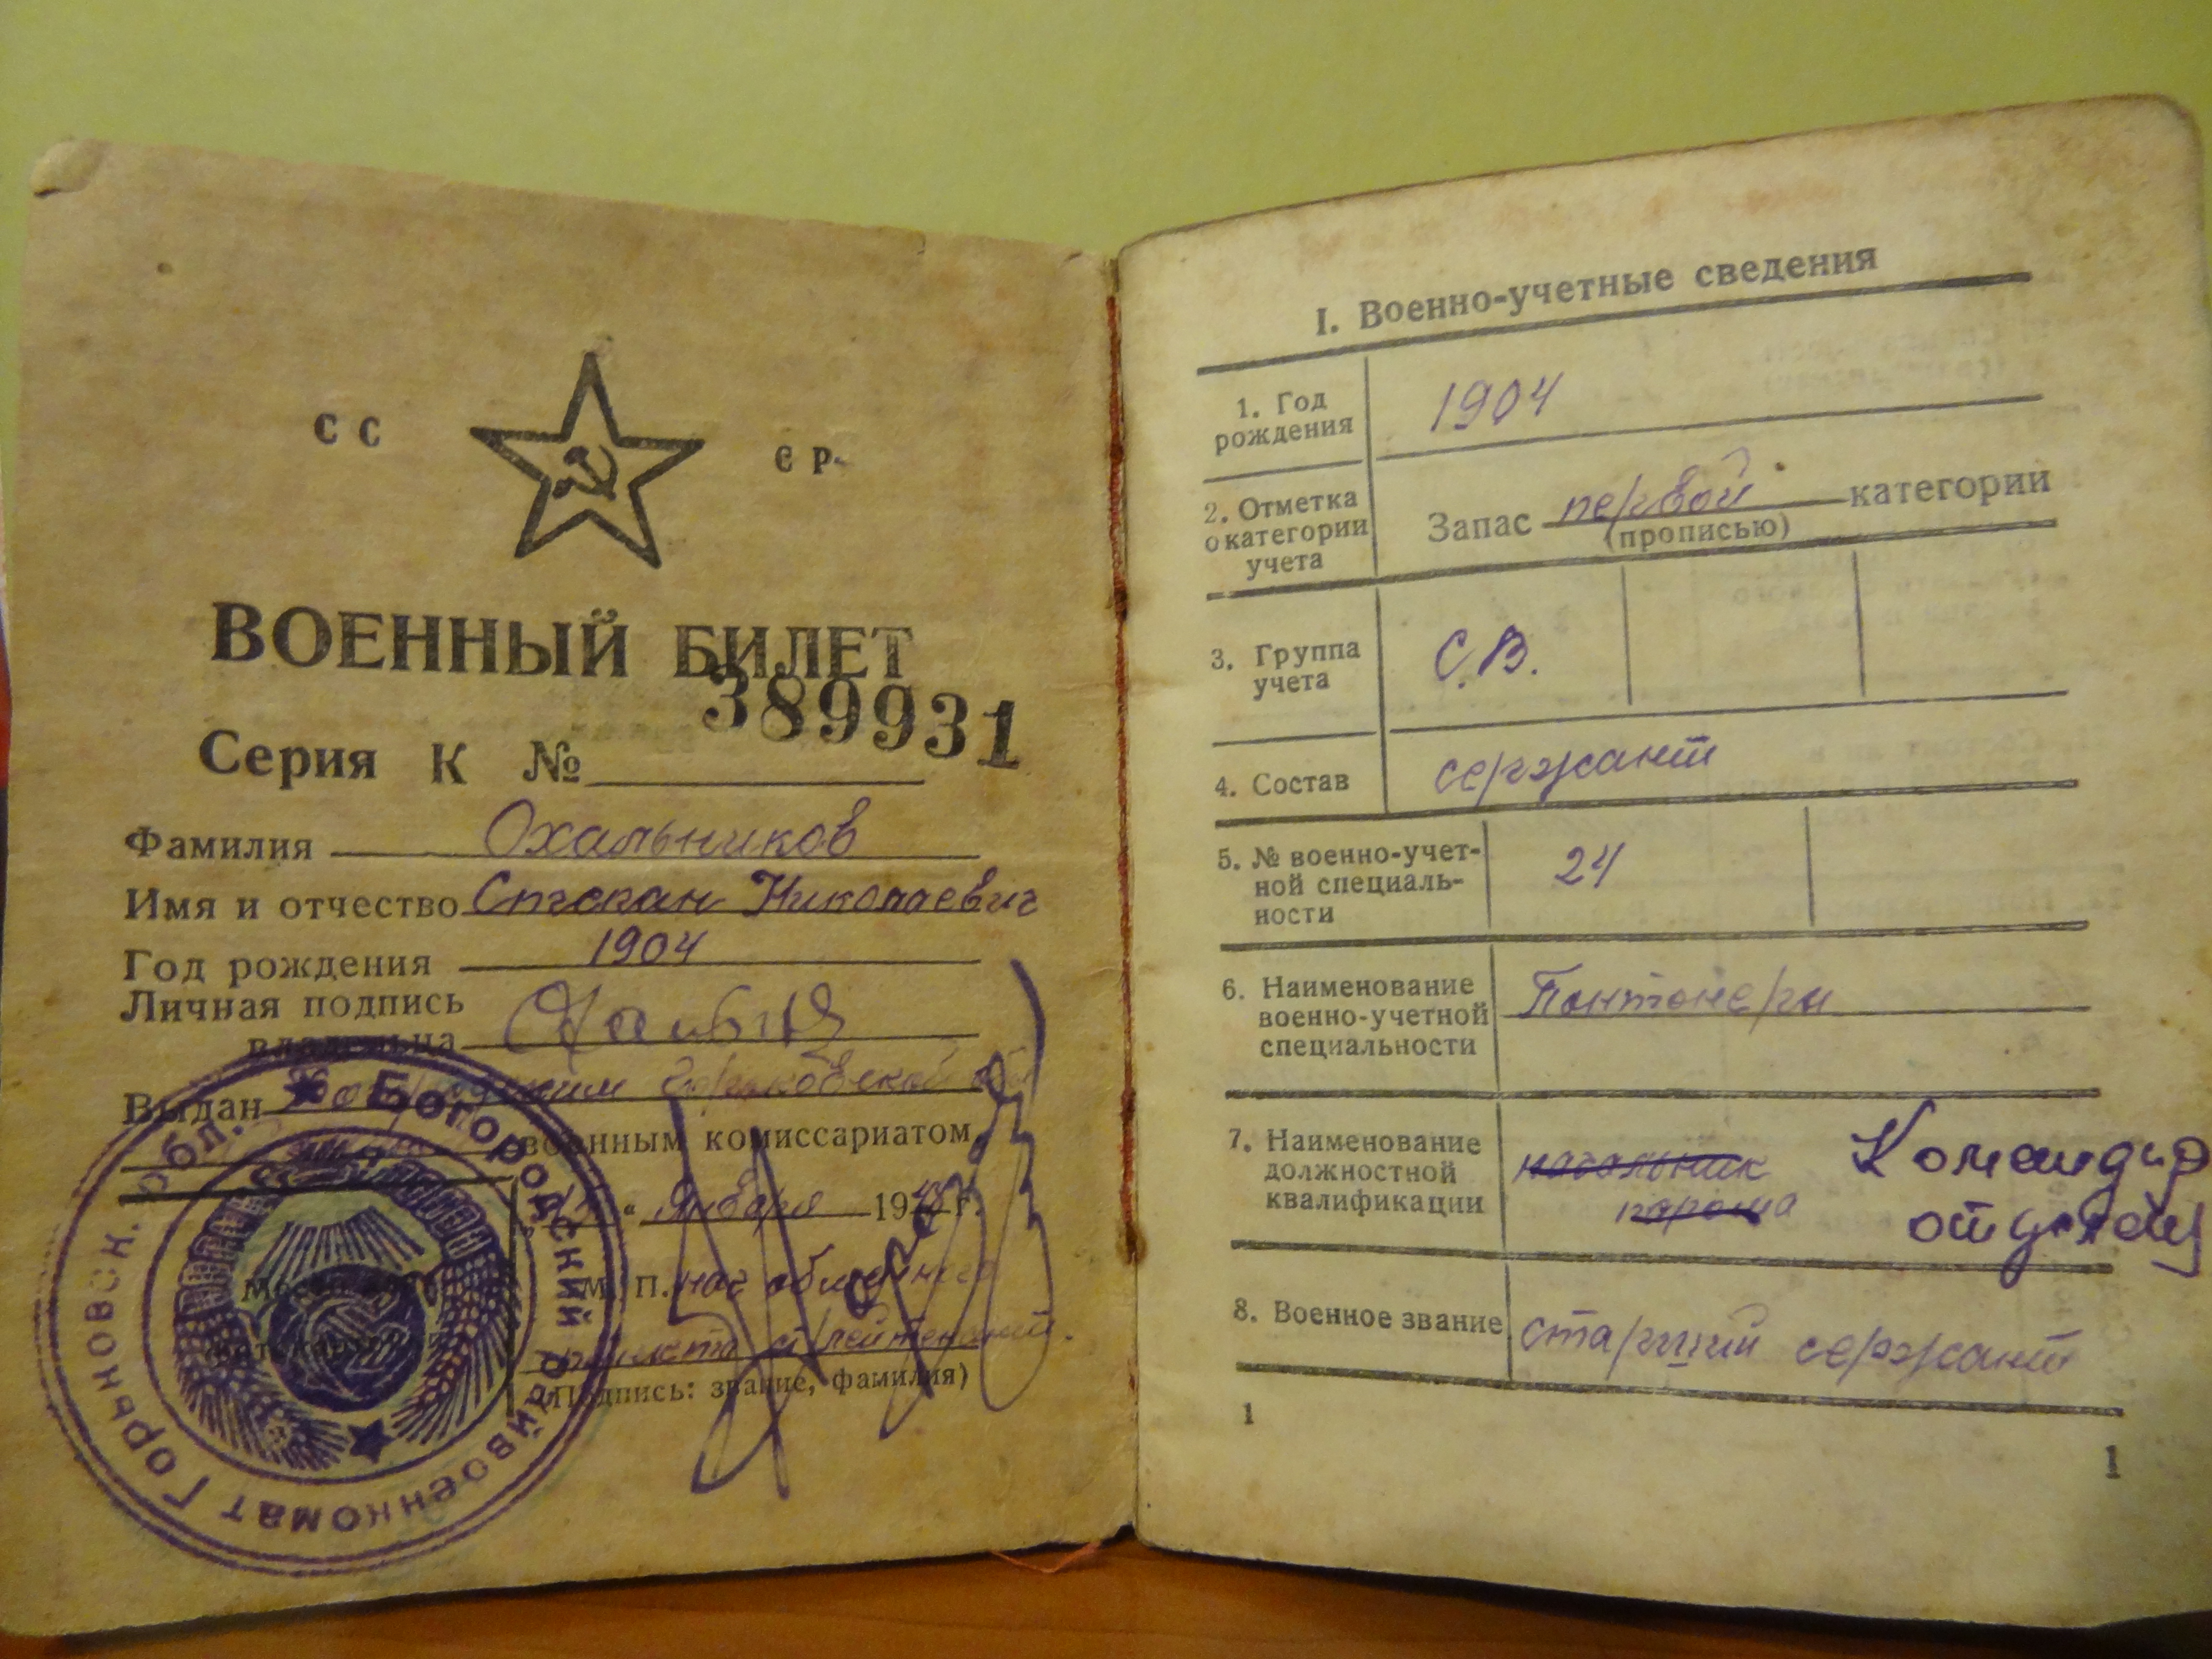 СС СР
ВОЕННЫЙ БИЛЕТ
389931
Серия К №
Фамилия Охальников
Имя и отчество Степан Николаевич
Год рождения 1904
Личная подпись
владельца
Выдан Богородским Горьковской обл
военным комиссариатом
" января 194 г.
М. П. нач
пункта ст лейтенант.
(Подпись: звание, фамилия)
★ Богородский райвоенкомат Горьковск. обл.
I. Военно-учетные сведения
1. Год
рождения
1904
2. Отметка
о категории
учета
Запас первой категории
(прописью)
3. Группа
учета
С.В.
4. Состав
сержант
5. № военно-учет-
ной специаль-
ности
24
6. Наименование
военно-учетной
специальности
Понтонеры
7. Наименование
должностной
квалификации
начальник
парома
Командир
отд
8. Военное звание
старший сержант
1
1